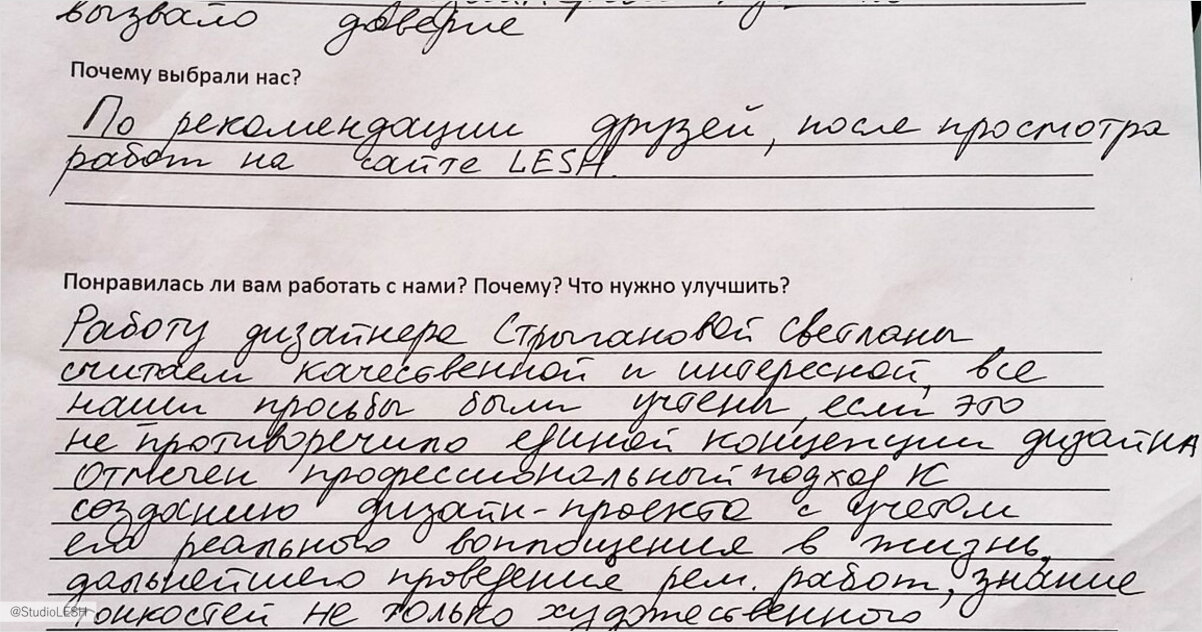 вызвало доверие
Почему выбрали нас?
По рекомендации друзей, после просмотра
работ на сайте LESH.
Понравилась ли вам работать с нами? Почему? Что нужно улучшить?
Работу дизайнера Стрыгановой Светланы
считаем качественной и интересной, все
наши просьбы были учтены, если это
не противоречило единой концепции дизайна
Отмечен профессиональный подход к
созданию дизайн-проекта с учетом
его реального воплощения в жизнь,
дальнейшего проведения рем. работ, знание
тонкостей не только художественного
@StudioLESH